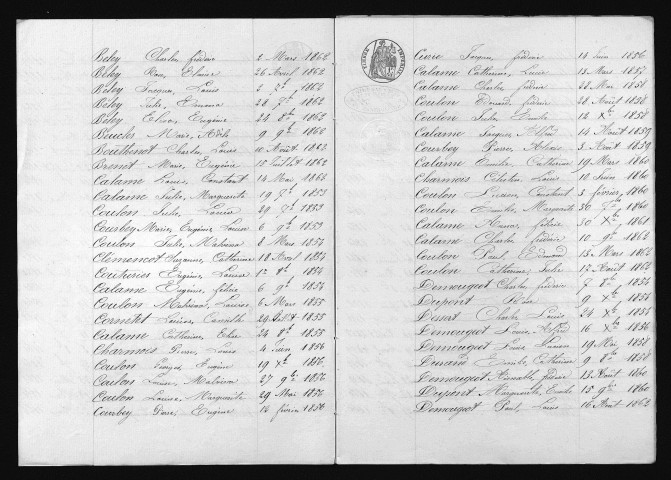 Béhy Charles frédéric 2 Mars 1862
Béhy Rose, Elmire 26 Avril 1862
Béhy Jacques, Louis 2 7bre 1862
Béhy Julie, Emma 28 7bre 1862
Béhy Elise, Eugénie 29 8bre 1862
Bouchs Marie, Adèle 9 9bre 1860
Bouthenot Charles Louis 10 Août 1862
Bremet Marie, Eugénie 15 Juillet 1862
Calame Louis, Constant 14 Mai 1864
Calame Julie, Marguerite 19 7bre 1853
Coulon Julie, Louise 29 7bre 1853
Courbey Marie, Eugénie Louise 6 9bre 1853
Coulon Julie, Malvina 8 Mars 1854
Clémencot Suzanne, Catherine 18 Avril 1854
Couturier Virginie, Louise 12 8bre 1854
Calame Eugénie, félicie 6 9bre 1854
Coulon Louise 6 Mars 1855
Cornetet Louise, Camille 29 Juillet 1855
Calame Catherine, Elise 24 8bre 1855
Charmois Pierre, Louis 4 Juin 1856
Coulon Jacques Eugène 19 Xbre 1856
Coulon Louise, Malvina 27 9bre 1856
Coulon Louise, Marguerite 29 Mai 1856
Courbey Pierre, Eugène 16 février 1856
Jacques, frédéric 14 Juin 1856
Calame Catherine, Louise 13 Mars 1857
Calame Charles frédéric 22 Mai 1858
Coulon Edouard, frédéric 22 Août 1858
Coulon Jules Emile 12 Xbre 1858
Calame Jacques, Alfred 14 Août 1859
Courbey Pierre, Alexis 3 Août 1859
Calame Emilie, Catherine 19 Mars 1860
Charmois Célestin Louis 10 Juin 1860
Coulon Lucien, Constant 3 février 1860
Coulon Emilie, Marguerite 30 7bre 1860
Calame félicie 30 Xbre 1861
Calame Charles frédéric 10 9bre 1862
Coulon Paul Edmond 13 Mars 1862
Coulon Catherine, Julie 17 Août 1862
Demouget Charles, frédéric 7 8bre 1854
Dupont 9 Xbre 1854
Charles Louis 24 Xbre 1854
Demouget Louis, Alfred 16 Xbre 1856
Demouget Louis Lucien 19 Mai 1858
Emilie, Catherine 9 8bre 1858
Demouget 13 Août 1860
Dupont Marguerite, Emilie 15 9bre 1860
Demouget Paul, Louis 16 Août 1862